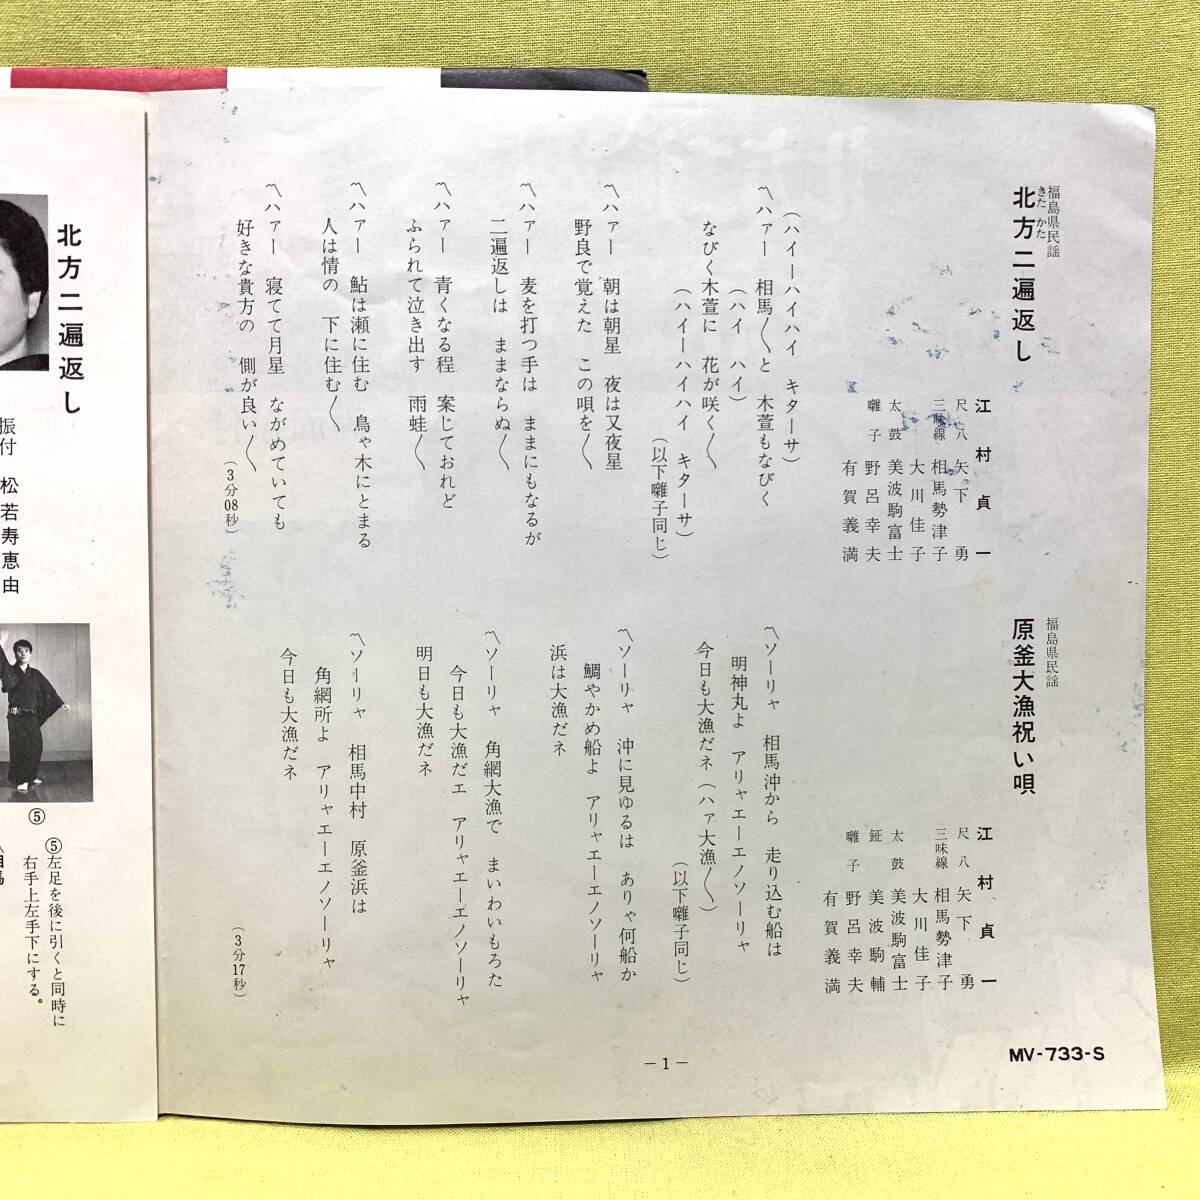 福島県民謡
北方二遍返し
きた かた
江村貞一
尺八 矢下 勇
三味線 相馬勢津子
大川佳子
太鼓 美波駒富士
囃子 野呂幸夫
有賀義満
(ハイーハイハイ キターサ)
〽ハァー 相馬〱と 木萱もなびく
(ハイ ハイ)
なびく木萱に 花が咲く〱
(ハイーハイハイ キターサ)
(以下囃子同じ)
〽ハァー 朝は朝星 夜は又夜星
野良で覚えた この唄を〱
〽ハァー 麦を打つ手は ままにもなるが
二遍返しは ままならぬ〱
〽ハァー 青くなる程 案じておれど
ふられて泣き出す 雨蛙〱
〽ハァー 鮎は瀬に住む 鳥ャ木にとまる
人は情の 下に住む〱
〽ハァー 寝てて月星 ながめていても
好きな貴方の 側が良い〱
(3分08秒)
福島県民謡
原釜大漁祝い唄
江村貞一
尺八 矢下 勇
三味線 相馬勢津子
大川佳子
太鼓 美波駒富士
鉦 美波駒輔
囃子 野呂幸夫
有賀義満
〽ソーリャ 相馬沖から 走り込む船は
明神丸よ アリャエーエノソーリャ
今日も大漁だネ(ハァ大漁〱)
(以下囃子同じ)
〽ソーリャ 沖に見ゆるは ありゃ何船か
鯛やかめ船よ アリャエーエノソーリャ
浜は大漁だネ
〽ソーリャ 角網大漁で まいわいもろた
今日も大漁だエ アリャエーエノソーリャ
明日も大漁だネ
〽ソーリャ 相馬中村 原釜浜は
角網所よ アリャエーエノソーリャ
今日も大漁だネ
(3分17秒)
MV-733-S
－1－
北方二遍返し
振付 松若寿恵由
⑤
⑤左足を後に引くと同時に
右手上左手下にする。